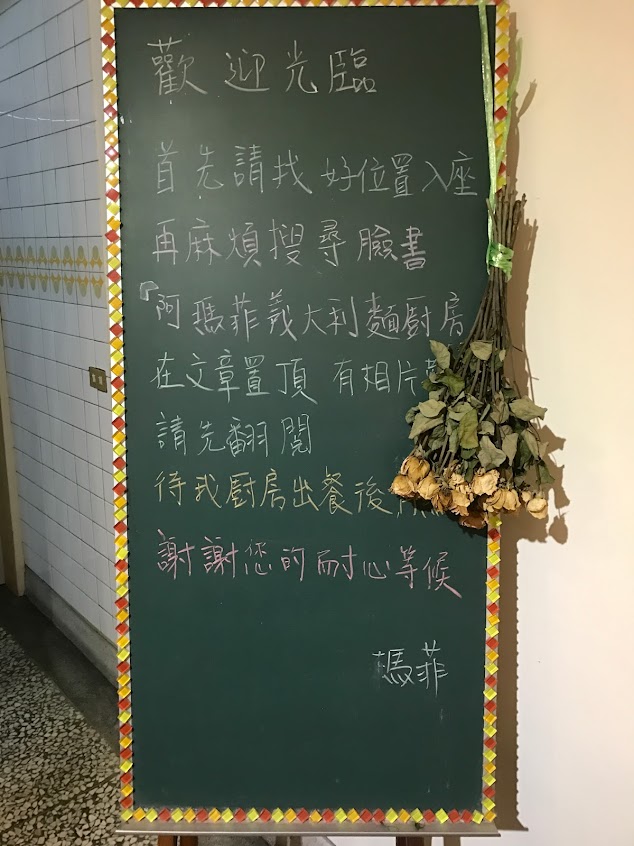 歡迎光臨
首先請找好位置入座
再麻煩搜尋臉書
「阿瑪菲義大利麵廚房
在文章置頂 有相片
請先翻閱
待我廚房出餐後
謝謝您的耐心等候
瑪菲